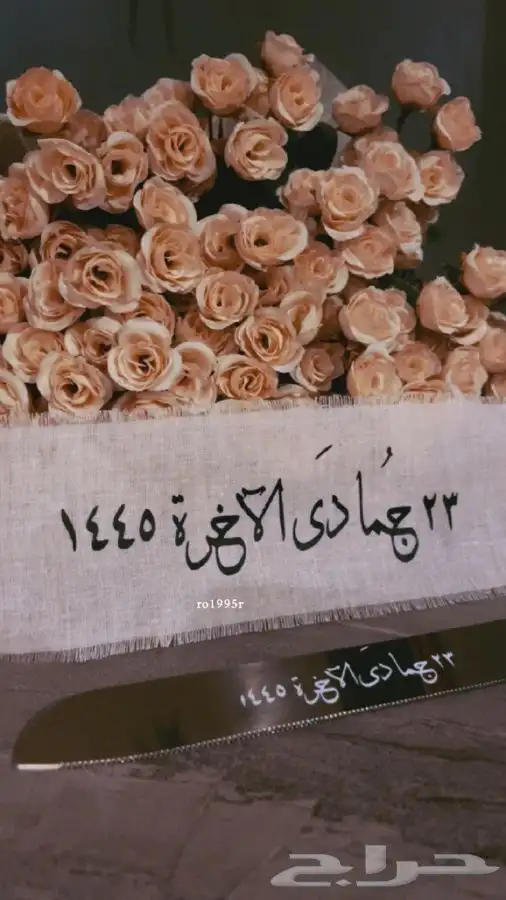 ٢٣ جُمادَى الآخرة ١٤٤٥
ro1995r
٢٣ جمادَى الآخرة ١٤٤٥
حراج